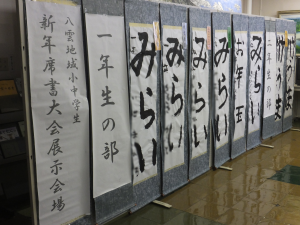 八雲地域小中学生
新年席書大会展示会場
一年生の部
みらい
みらい
みらい
みらい
お年玉
みらい
二年生の部